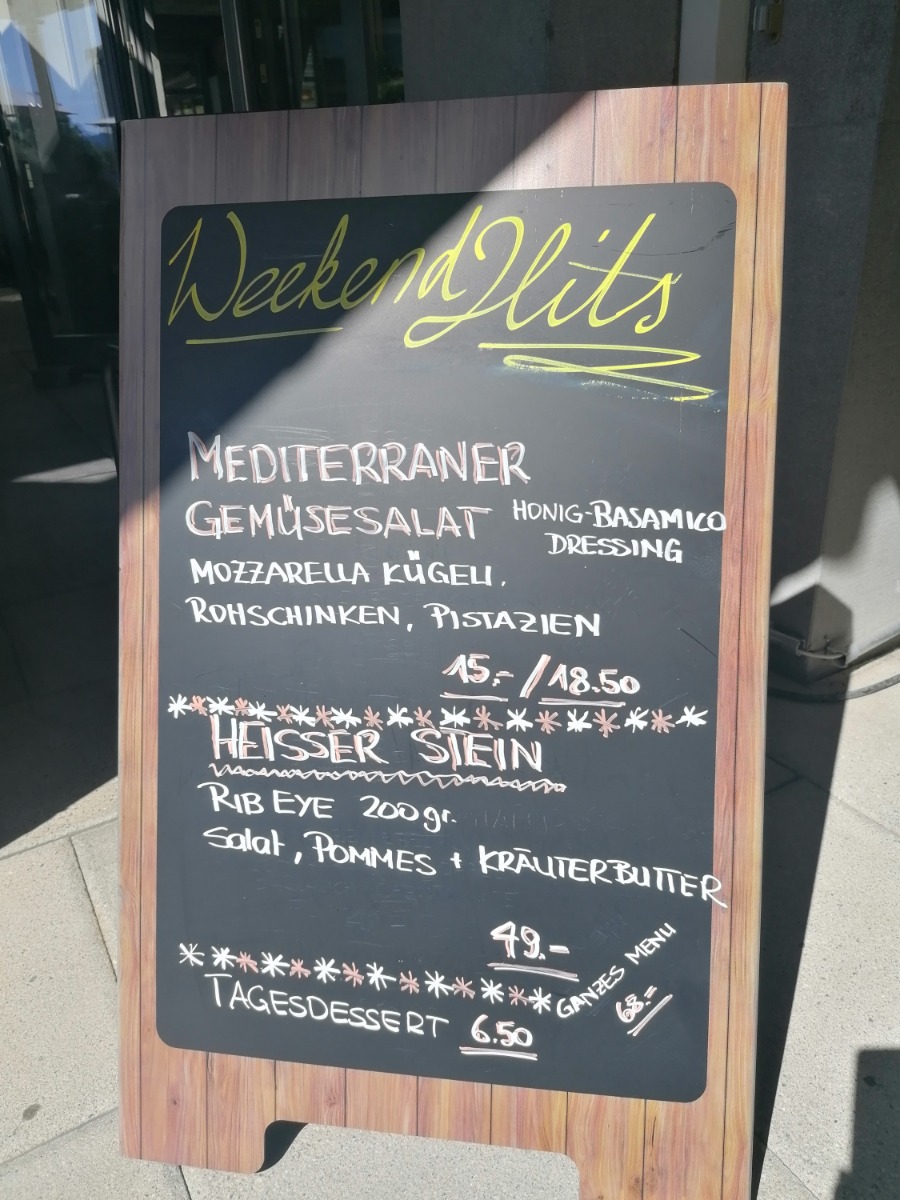 Weekend Hits
MEDITERRANER
GEMÜSESALAT HONIG-BASAMICO
DRESSING
MOZZARELLA KÜGELI,
ROHSCHINKEN, PISTAZIEN
15.- / 18.50
HEISSER STEIN
RIB EYE 200gr.
Salat, POMMES + KRÄUTERBUTTER
49.-
GANZES MENU
68.-
TAGESDESSERT 6.50